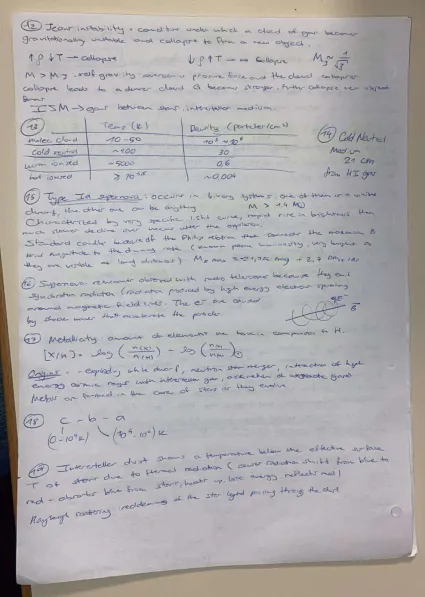 12 Jeans instability: condition under which a cloud of gas becomes
gravitationally unstable and collapse to form a new object.
↑ρ ↓T → collapse ↓ρ ↑T → no collapse M_J ~ 1/√ρ
M > M_J → self gravity overcome pressure force and the cloud collapses
collapse leads to a denser cloud & become stronger. further collapse new object
forms
ISM → gas between stars, interstellar medium.
13 Temp (K) Density (particles/cm³)
molec cloud 10-50
cold neutral ~100 30
warm ionised ~5000 0,6
hot ionised ~0,004
14 Cold Neutral
Medium
21 cm
from HI gas
15 Type Ia supernova: occurs in binary systems, one of them is a white
dwarf, the other one can be anything
Characterised by very specific light curve, rapid rise in brightness then
much slower decline over weeks after the explosion.
Standard candle because of the Philips relation that connects the maximum B
band magnitude to the dimming rate (known peak luminosity, very bright so
they are visible at long distance)
16 Supernova remnant observed with radio telescope because they emit
synchrotron radiation (radiation produced by high energy electron spiraling
around magnetic field lines. The es are caused
by shock waves that accelerate the particle.
17 Metallicity amount of elements we have in comparison to H.
[X/H] = log (n(X)/n(H)) - log (n(X)/n(H))⊙
Origins - exploding white dwarf, neutron star merger, interaction of high
energy cosmic rays with interstellar gas,
Metals are formed in the cores of stars as they evolve
18 c - b - a
19 Interstellar dust shows a temperature below the effective surface
T of stars due to thermal radiation (cause radiation shift from blue to
red - absorbs blue from stars, heats up, lose energy reflects red)
Rayleigh scattering: reddening of the star light passing through the dust